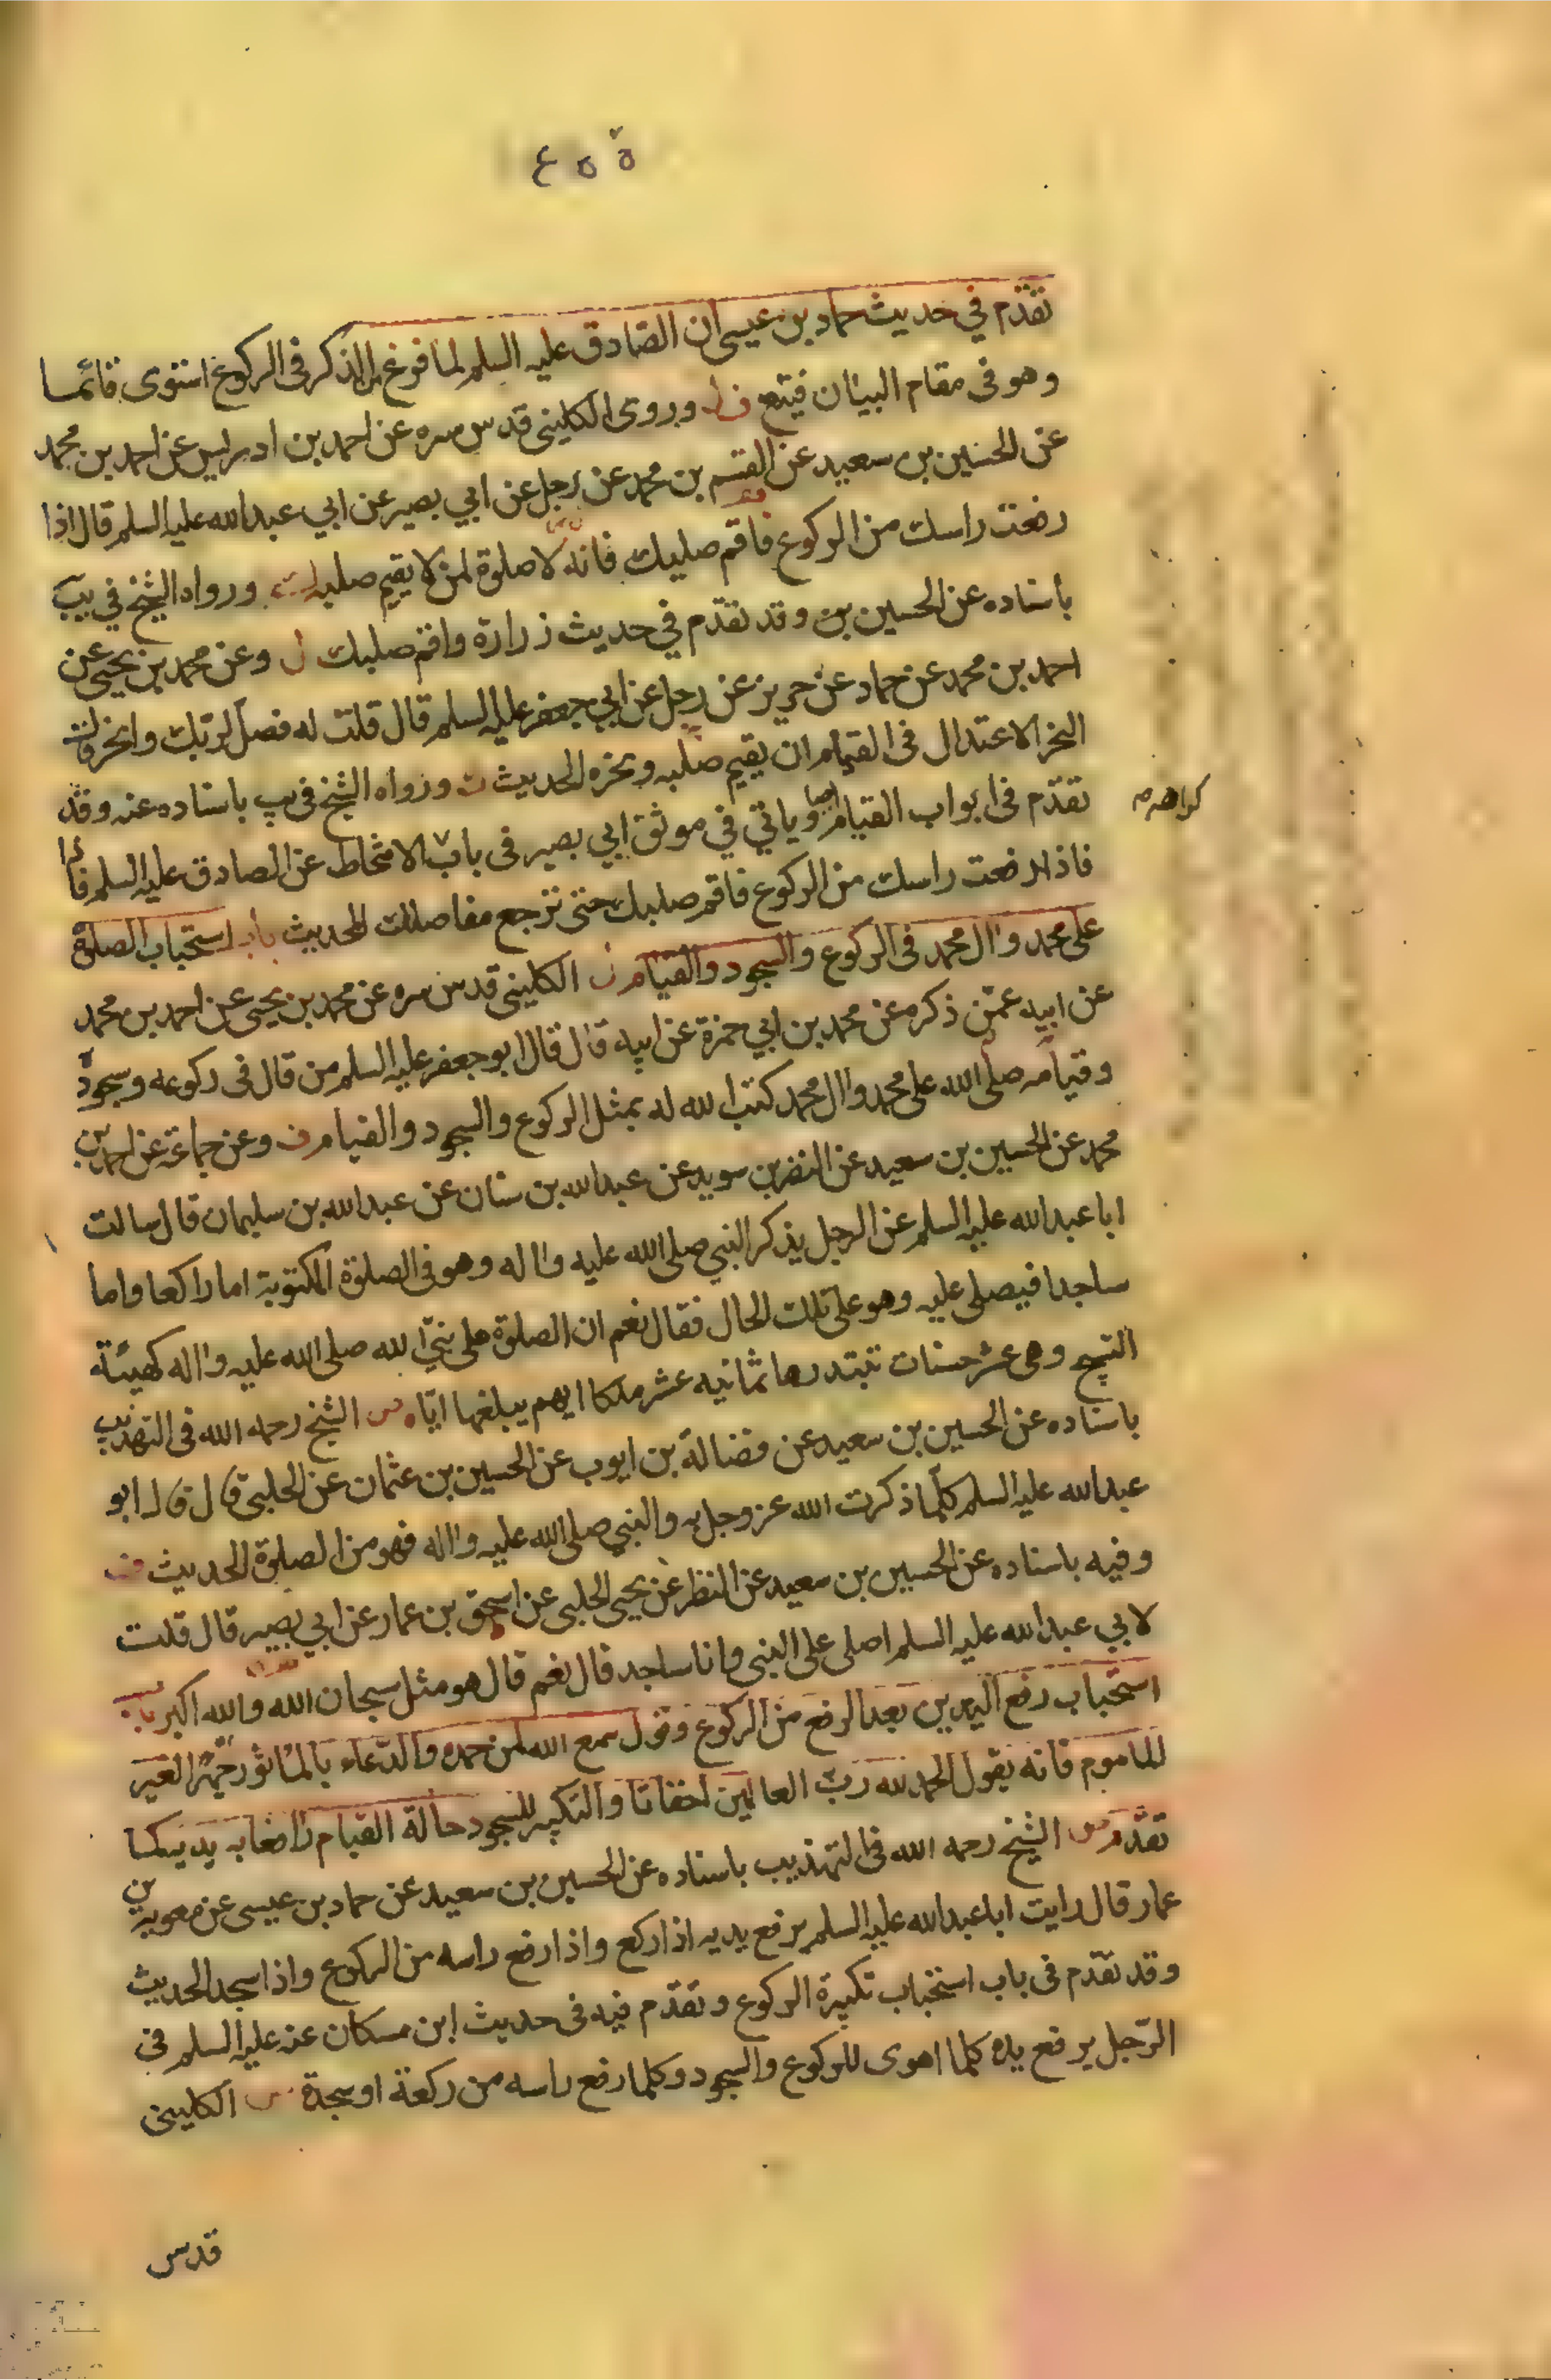 ع ٥ ٥
تقدّم في حديث حماد بن عيسى ان الصّادق عليه السلم لما فرغ من الذكر فى الركوع استوى قائما
وهو فى مقام البيان فيتبع وروى الكلينى قدس سره عن احمد بن ادريس عن احمد بن محمد
عن الحسين بن سعيد عن القسم بن محمد عن رجل عن ابي بصير عن ابي عبدالله عليه السلم قال اذا
رفعت راسك من الركوع فاقم صلبك فانه لا صلوة لمن لا يقيم صلبه ورواه الشيخ في يب
باسناده عن الحسين بن وقد تقدّم في حديث زرارة واقم صلبك ل وعن محمد بن يحيى عن
احمد بن محمد عن حماد عن حريز عن رجل عن ابي جعفر عليه السلم قال قلت له فصل لربّك وانحر قال
النحر الاعتدال فى القيام ان يقيم صلبه ونحره الحديث ورواه الشيخ فى يب باسناده عنه وقد
تقدّم فى ابواب القيام ايضا وياتي في موثق ابي بصير فى باب الانحطاط عن الصادق عليه السلم قائما
كراهة م
فاذا رفعت راسك من الركوع فاقم صلبك حتى ترجع مفاصلك الحديث باب استحباب الصلوة
على محمد واال محمد فى الركوع والسجود والقيام الكلينى قدس سره عن محمد بن يحيى عن احمد بن محمد
عن ابيه عمّن ذكره عن محمد بن ابي حمزة عن ابيه قال قال ابو جعفر عليه السلم من قال فى ركوعه وسجوده
وقيامه صلى الله على محمد واال محمد كتب الله له بمثل الركوع والسجود والقيام وعن جماعة عن احمد بن
محمد عن الحسين بن سعيد عن النضر بن سويد عن عبدالله بن سنان عن عبدالله بن سليمان قال سالت
ابا عبدالله عليه السلم عن الرجل يذكر النبي صلى الله عليه واله وهو فى الصلوة المكتوبة اما راكعا واما
ساجدا فيصلى عليه وهو على تلك الحال فقال نعم ان الصلوة على نبيّ الله صلى الله عليه واله كهيئة
التسبيح وهى عشر حسنات تبتدرها ثمانيه عشر ملكا ايهم يبلغها ايّاه الشيخ رحمه الله فى التهذيب
باسناده عن الحسين بن سعيد عن فضالة بن ايوب عن الحسين بن عثمان عن الحلبي قال قال ابو
عبدالله عليه السلم كلّما ذكرت الله عز وجل به والنبي صلى الله عليه واله فهو من الصلوة الحديث
وفيه باسناده عن الحسين بن سعيد عن النظر عن يحيى الحلبى عن اسحق بن عمار عن ابي بصير قال قلت
لابي عبدالله عليه السلم اصلى على النبى وانا ساجد قال نعم قال هو مثل سبحان الله والله اكبر باب
استحباب رفع اليدين بعد الرفع من الركوع وقول سمع الله لمن حمده والدّعاء بالماثور جهرا لغير
للماموم فانه يقول الحمد لله ربّ العالمين اخفاتا والتكبير للسجود حالة القيام رافعا به يديه كما
تقدّم الشيخ رحمه الله فى التهذيب باسناده عن الحسين بن سعيد عن حماد بن عيسى عن معوية بن
عمار قال رايت ابا عبدالله عليه السلم يرفع يديه اذا ركع واذا رفع راسه من الركوع واذا سجد الحديث
وقد تقدّم فى باب استحباب تكبيرة الركوع وتقدّم فيه فى حديث ابن مسكان عنه عليه السلم فى
الرّجل يرفع يده كلما اهوى للركوع والسجود وكلما رفع راسه من ركعة او سجدة الكلينى
قدس